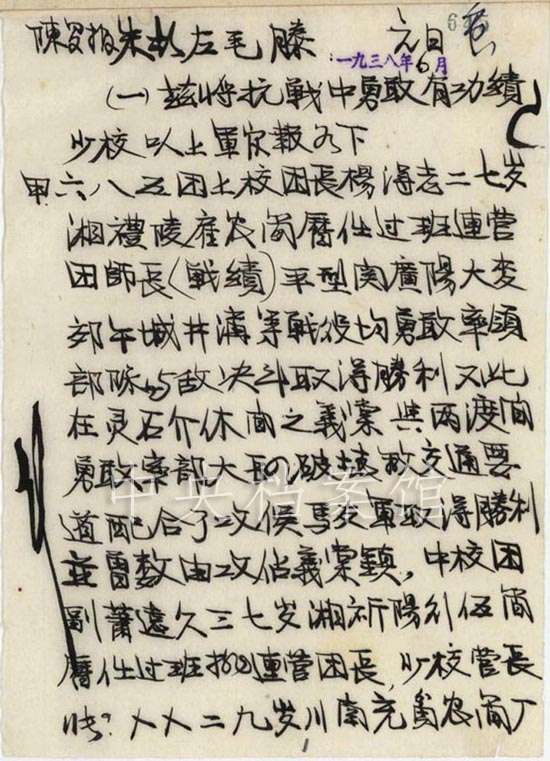 陳罗报朱彭左毛滕 元日
一九三八年6月
(一)兹将抗戰中勇敢有功績
少校以上軍官報如下
甲.六八五团上校团長楊得志二七岁
湘禮陵産农简歷任过班連营
团師長(戰績)平型関廣陽大麦
郊午城井溝等戰役均勇敢率領
部隊与敌决斗取得勝利又此
在灵石介休间之義棠與两渡间
勇敢率部大胆破坏敌交通要
道配合了攻侯馬友軍取得勝利
並曾数由攻佔義棠鎮,中校团
副蕭遠久三七岁湘祈陽 伍简
歷任过班排連营团長,少校营長
二九岁川南充 农简
中央档案馆